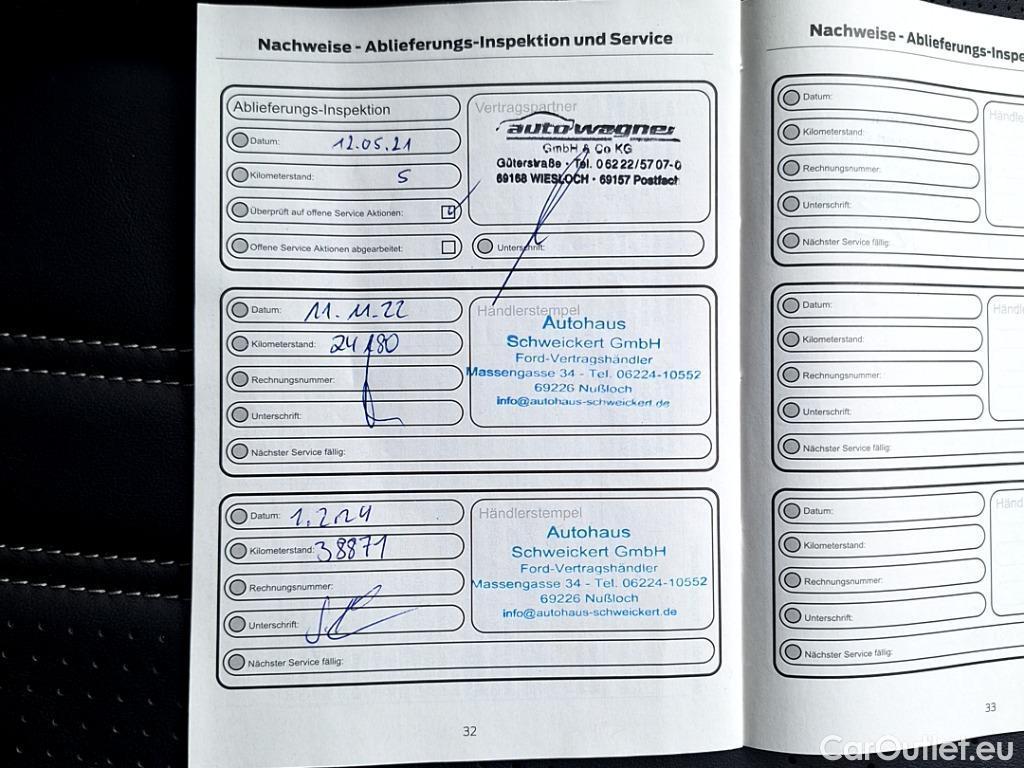 Nachweise - Ablieferungs-Inspektion und Service
Ablieferungs-Inspektion
Datum: 12.05.21
Kilometerstand: 5
Überprüft auf offene Service Aktionen:
Offene Service Aktionen abgearbeitet:
Vertragspartner
auto wagner
GmbH & Co KG
Güterstraße · Tel. 06222/5707-0
69168 WIESLOCH · 69157 Postfach
Unterschrift:
Datum: 11.11.22
Kilometerstand: 24180
Rechnungsnummer:
Unterschrift:
Nächster Service fällig:
Händlerstempel
Autohaus
Schweickert GmbH
Ford-Vertragshändler
Massengasse 34 - Tel. 06224-10552
69226 Nußloch
info@autohaus-schweickert.de
Datum: 1.2.24
Kilometerstand: 38871
Rechnungsnummer:
Unterschrift:
Nächster Service fällig:
Händlerstempel
Autohaus
Schweickert GmbH
Ford-Vertragshändler
Massengasse 34 - Tel. 06224-10552
69226 Nußloch
info@autohaus-schweickert.de
32
Nachweise - Ablieferungs-Inspe
Datum:
Kilometerstand:
Rechnungsnummer:
Unterschrift:
Nächster Service fällig:
Händle
Datum:
Kilometerstand:
Rechnungsnummer:
Unterschrift:
Nächster Service fällig:
Händl
Datum:
Kilometerstand:
Rechnungsnummer:
Unterschrift:
Nächster Service fällig:
Händ
33
CarOutlet.eu